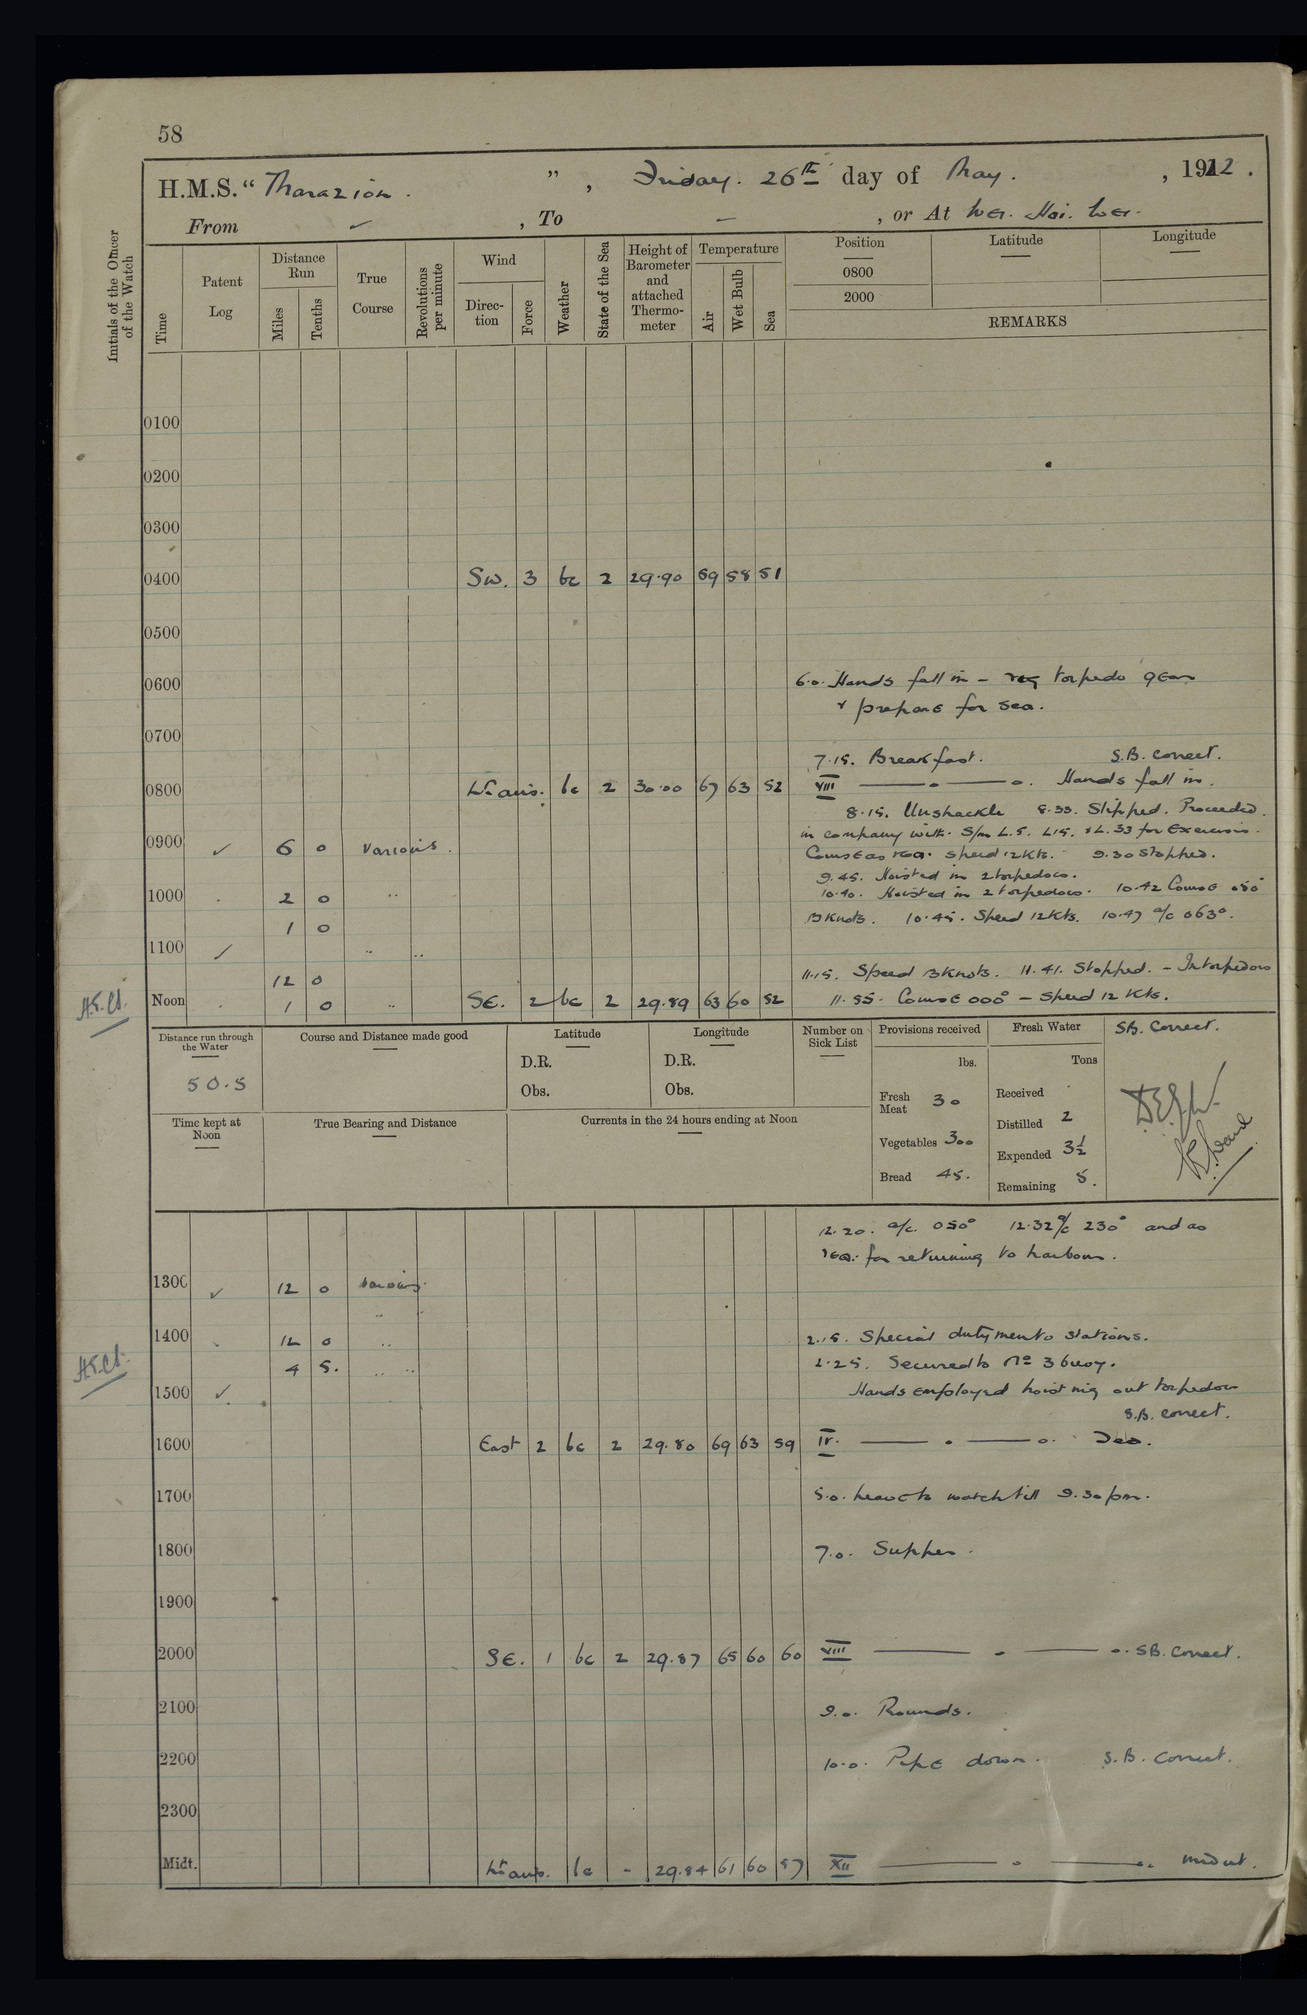 58
H.M.S. “ Marazion . ” , Friday. 26th day of May . , 1922 .
From ✓ , To — , or At Wei. Hai. Wei.
Initials of the Officer of the Watch
Time
Patent Log
Distance Run
Miles
Tenths
True Course
Revolutions per minute
Wind
Direction
Force
Weather
State of the Sea
Height of Barometer and attached Thermometer
Temperature
Air
Wet Bulb
Sea
Position
Latitude
Longitude
0800
2000
REMARKS
0100
0200
0300
0400 SW. 3 bc 2 29.90 59 58 51
0500
0600 6.0. Hands fall in – rig torpedo gear
& prepare for sea.
0700
7.15. Breakfast. S.B. correct.
0800 Lt airs. bc 2 30.00 67 63 52 VIII Hands fall in.
8.15. Unshackle 8.33. Slipped. Proceeded
in company with S/m L.5. L15. & L.33 for Exercises.
0900 ✓ 6 0 Various. Course as req. Speed 12 Kts. 9.30 Stopped.
9.45. Hoisted in 2 torpedoes.
1000 2 0 " 10.40. Hoisted in 2 torpedoes. 10.42 Course 050°
1 0 13 Knots. 10.45. Speed 12 Kts. 10.47 a/c 063°.
1100 ✓ " "
12 0 11.15. Speed 13 Knots. 11.41. Stopped. – In torpedoes
Noon 1 0 " SE. 2 bc 2 29.89 63 60 52 11.55. Course 000° – Speed 12 Kts.
Distance run through the Water
50.5
Course and Distance made good
Latitude
D.R.
Obs.
Longitude
D.R.
Obs.
Number on Sick List
Provisions received
lbs.
Fresh Meat 30
Vegetables 300
Bread 45.
Fresh Water
Tons
Received
Distilled 2
Expended 3½
Remaining 5.
SB. Correct.
Time kept at Noon
True Bearing and Distance
Currents in the 24 hours ending at Noon
12.20. a/c. 050° 12.32 a/c 230° and as
req. for returning to harbour.
1300 ✓ 12 0 Various.
1400 12 0 " 2.15. Special duty men to stations.
4 5. " " 2.25. Secured to No 3 buoy.
1500 ✓ Hands employed hoisting out torpedoes
S.B. correct.
1600 East 2 bc 2 29.80 69 63 59 IV. Tea.
1700 5.0. Leave to watch till 9.30 pm.
1800 7.0. Supper.
1900
2000 SE. 1 bc 2 29.87 65 60 60 VIII SB. Correct.
2100 9.0. Rounds.
2200 10.0. Pipe down. S.B. Correct.
2300
Midt. Lt airs. bc - 29.84 61 60 57 XII